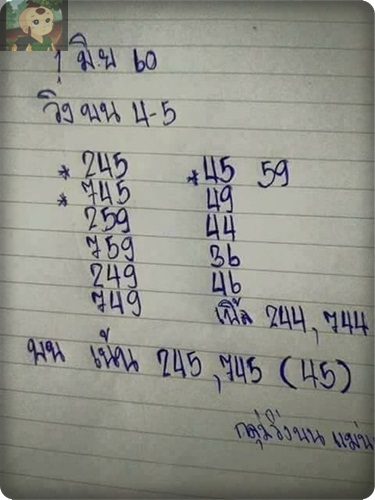 1 มิ.ย 60
วิ่ง บน 4-5
* 245 * 45 59
* 745 49
259 44
759 36
249 46
749 เบิ้ล 244, 744
บน เน้น 245, 745 (45)
กลุ่มวิ่งบน แม่น